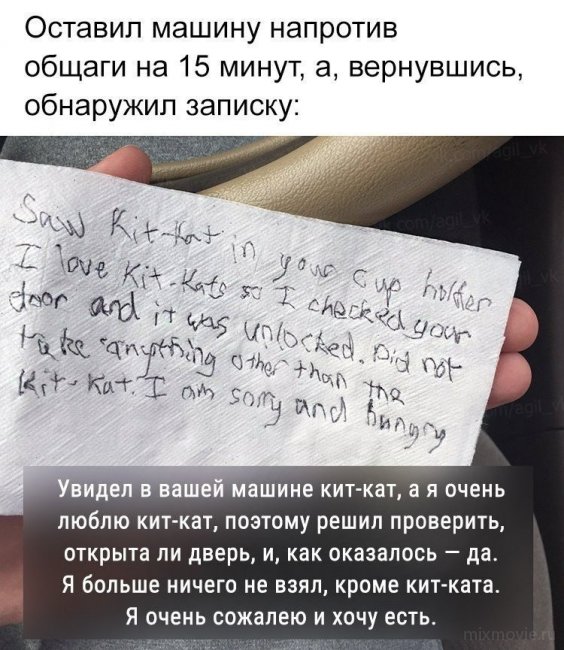 Оставил машину напротив
общаги на 15 минут, а, вернувшись,
обнаружил записку:
Saw Kit-Kat in your cup holder
I love Kit-Kats so I checked your
door and it was unlocked. Did not
take anything other than the
Kit-Kat. I am sorry and hungry
Увидел в вашей машине кит-кат, а я очень
люблю кит-кат, поэтому решил проверить,
открыта ли дверь, и, как оказалось — да.
Я больше ничего не взял, кроме кит-ката.
Я очень сожалею и хочу есть.
mixmovie.ru